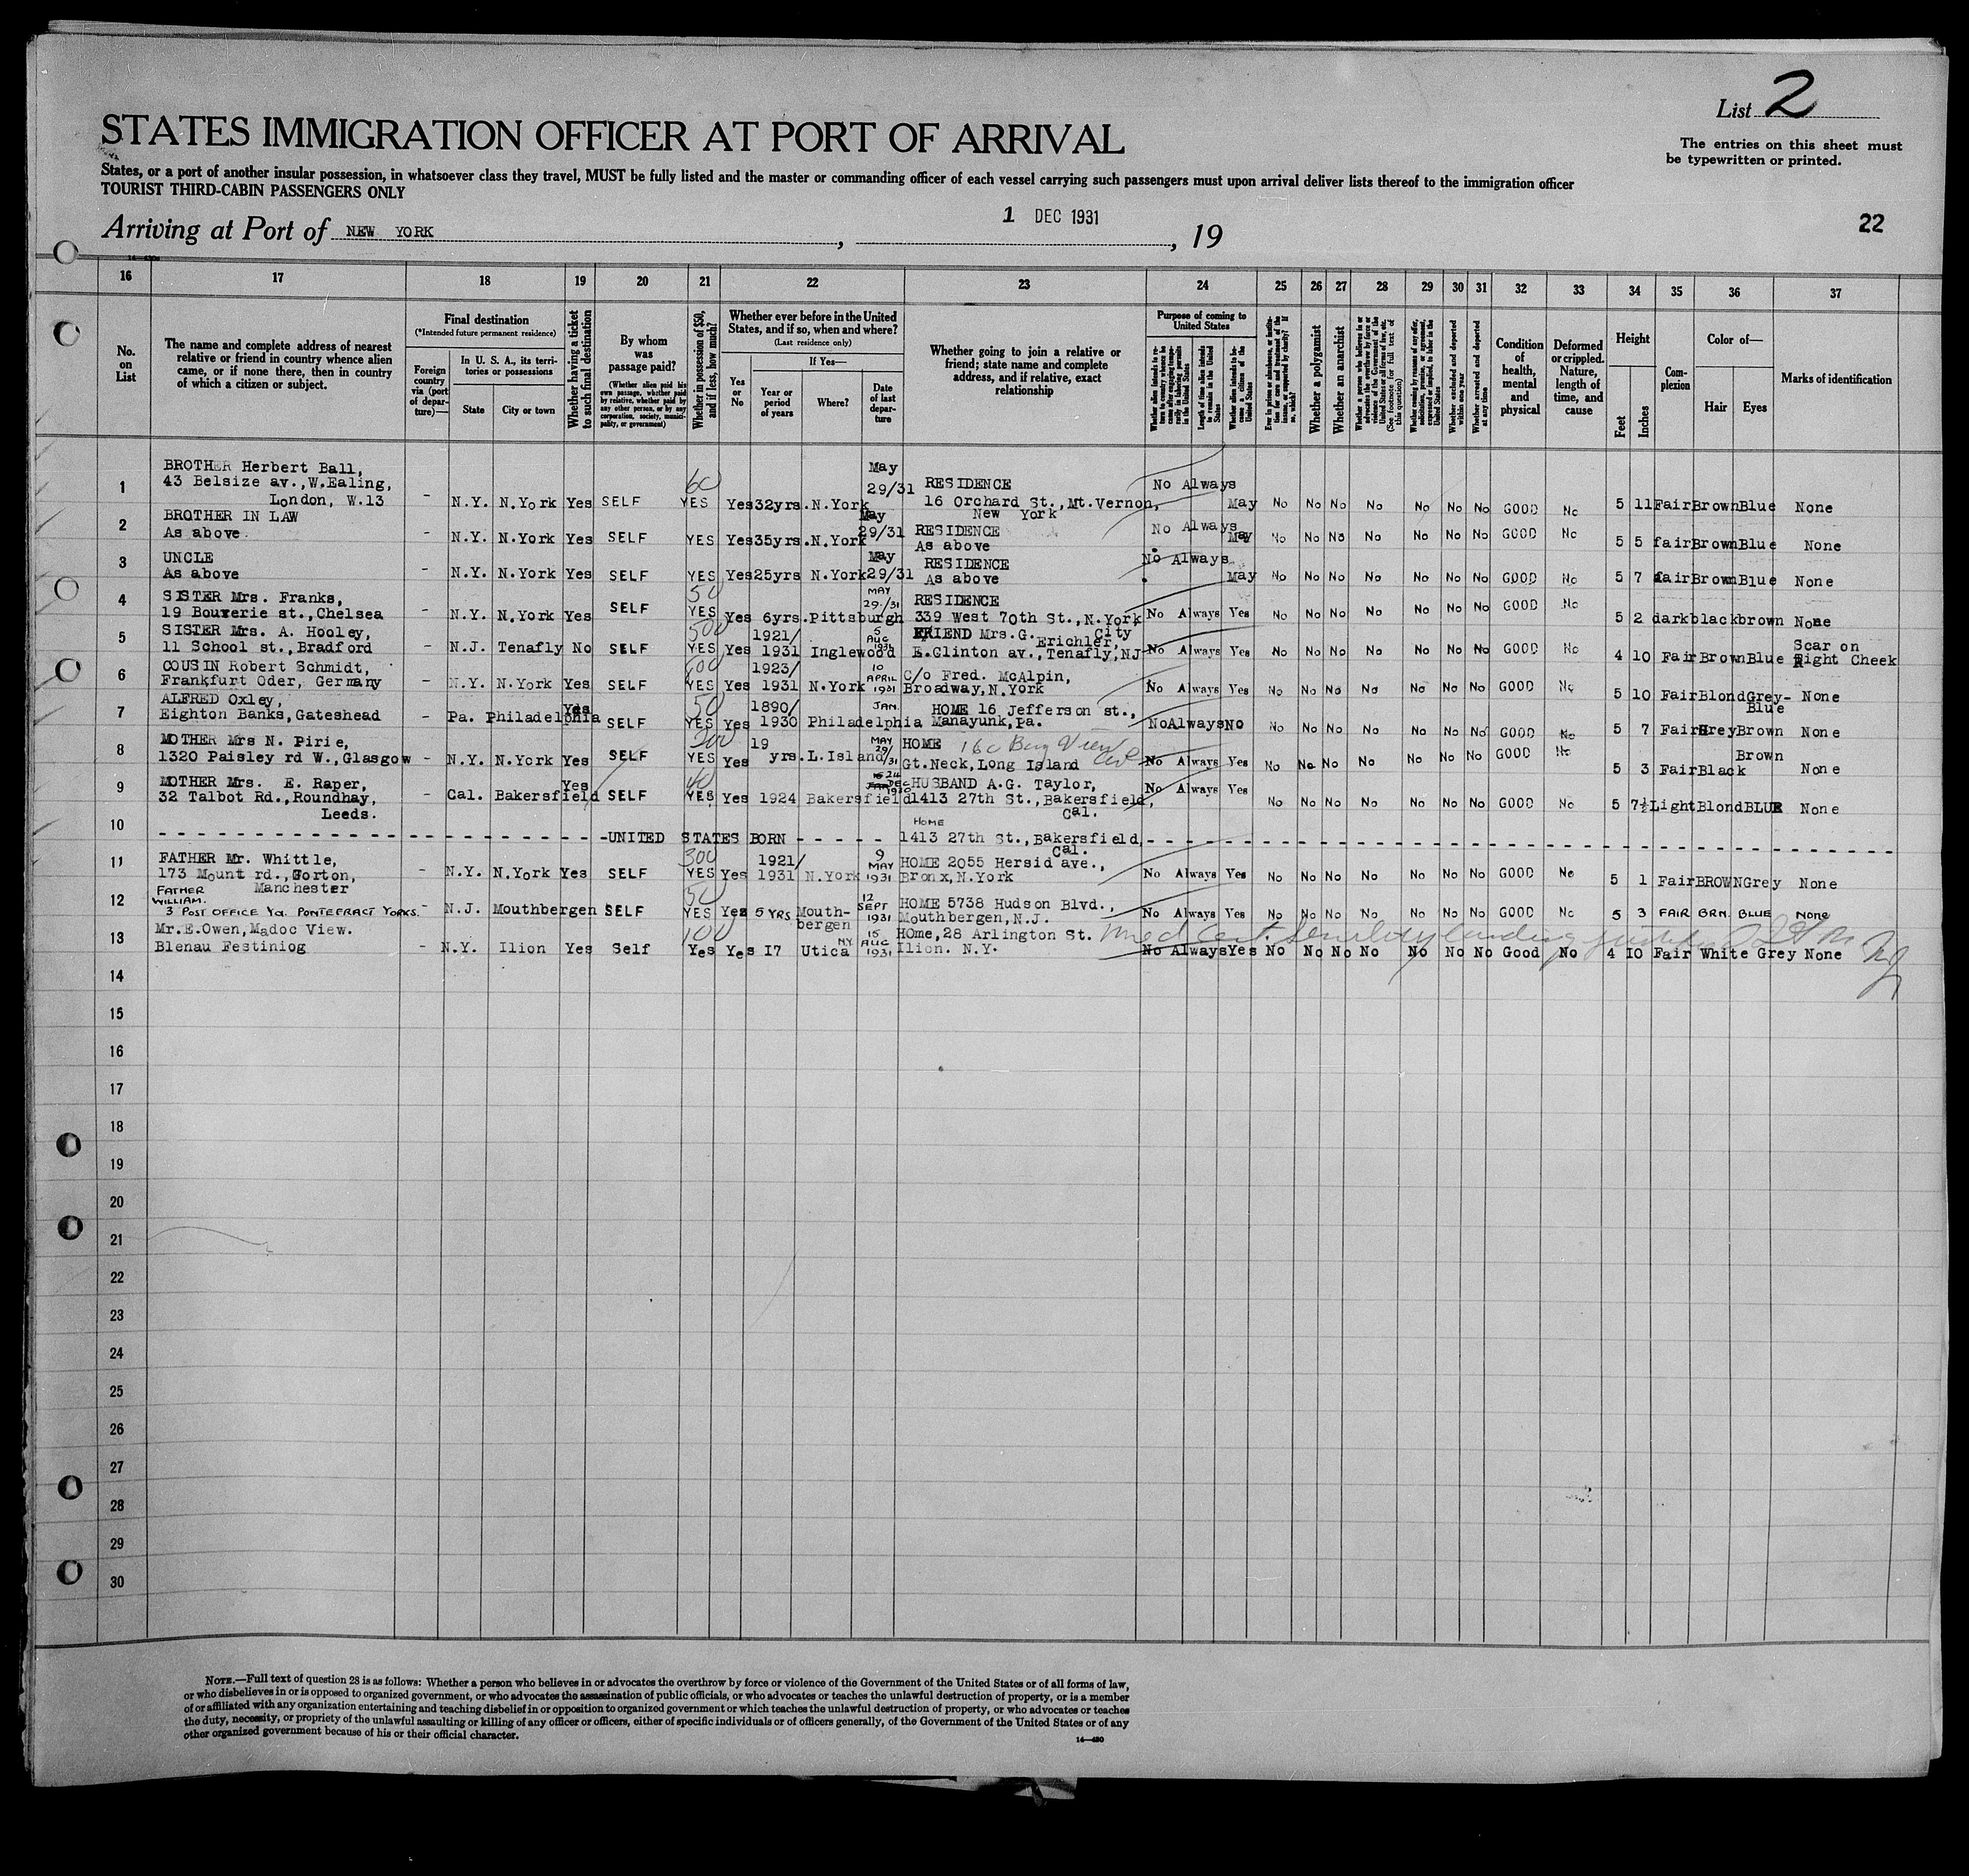 List 2
STATES IMMIGRATION OFFICER AT PORT OF ARRIVAL
The entries on this sheet must
be typewritten or printed.
States, or a port of another insular possession, in whatsoever class they travel, MUST be fully listed and the master or commanding officer of each vessel carrying such passengers must upon arrival deliver lists thereof to the immigration officer
TOURIST THIRD-CABIN PASSENGERS ONLY
Arriving at Port of NEW YORK, 1 DEC 1931, 19
22
16 17 18 19 20 21 22 23 24 25 26 27 28 29 30 31 32 33 34 35 36 37
No. on List
The name and complete address of nearest relative or friend in country whence alien came, or if none there, then in country of which a citizen or subject.
Final destination
(*Intended future permanent residence)
Foreign country via (port of departure)—
In U. S. A., its territories or possessions
State
City or town
Whether having a ticket to such final destination
By whom was passage paid?
(Whether alien paid his own passage, whether paid by relative, whether paid by any other person, or by any corporation, society, municipality, or government)
Whether in possession of $50, and if less, how much?
Whether ever before in the United States, and if so, when and where?
(Last residence only)
Yes or No
If Yes—
Year or period of years
Where?
Date of last departure
Whether going to join a relative or friend; state name and complete address, and if relative, exact relationship
Purpose of coming to United States
Whether alien intends to return to country whence he came after engaging temporarily in laboring pursuits in the United States
Length of time alien intends to remain in the United States
Whether alien intends to become a citizen of the United States
Ever in prison or almshouse, or institution for care and treatment of the insane, or supported by charity? If so, which?
Whether a polygamist
Whether an anarchist
Whether a person who believes in or advocates the overthrow by force or violence of the Government of the United States or all forms of law, etc. (See footnote for full text of this question)
Whether coming by reason of any offer, solicitation, promise, or agreement, expressed or implied, to labor in the United States
Whether excluded and deported within one year
Whether arrested and deported at any time
Condition of health, mental and physical
Deformed or crippled. Nature, length of time, and cause
Height
Feet
Inches
Complexion
Color of—
Hair
Eyes
Marks of identification
1 BROTHER Herbert Ball, 43 Belsize av.,W.Ealing, London, W.13 - N.Y. N.York Yes SELF 60 YES Yes 32yrs. N.York May 29/31 RESIDENCE 16 Orchard St.,Mt.Vernon, New York No Always May No No No No No No No GOOD No 5 11 Fair Brown Blue None
2 BROTHER IN LAW As above - N.Y. N.York Yes SELF YES Yes 35yrs. N.York May 29/31 RESIDENCE As above No Always May No No No No No No No GOOD No 5 5 fair Brown Blue None
3 UNCLE As above - N.Y. N.York Yes SELF YES Yes 25yrs N.York May 29/31 RESIDENCE As above No Always May No No No No No No No GOOD No 5 7 fair Brown Blue None
4 SISTER Mrs. Franks, 19 Bouverie st.,Chelsea - N.Y. N.York Yes SELF 50 YES Yes 6yrs. Pittsburgh MAY 29./31 RESIDENCE 339 West 70th St.,N.York City No Always Yes No No No No No No No GOOD No 5 2 dark black brown None
5 SISTER Mrs. A. Hooley, 11 School st.,Bradford - N.J. Tenafly No SELF 500 YES Yes 1921/ 1931 Inglewood 5 AUG 1931 FRIEND Mrs.G. Erichler, E.Clinton av.,Tenafly,NJ No Always Yes No No No No No No No GOOD No 4 10 Fair Brown Blue Scar on Right Cheek
6 COUSIN Robert Schmidt, Frankfurt Oder, Germany - N.Y. N.York Yes SELF 500 YES Yes 1923/ 1931 N.York 10 APRIL 1931 C/o Fred. McAlpin, Broadway,N.York No Always Yes No No No No No No No GOOD No 5 10 Fair Blond Grey-Blue None
7 ALFRED Oxley, Eighton Banks,Gateshead - Pa. Philadelphia Yes SELF 50 YES Yes 1890/ 1930 Philadelphia JAN. HOME 16 Jefferson st., Manayunk,Pa. No Always No No No No No No No No GOOD No 5 7 Fair Grey Brown None
8 MOTHER Mrs N. Pirie, 1320 Paisley rd W.,Glasgow - N.Y. N.York Yes SELF 200 YES Yes 19 yrs. L.Island MAY 29/31 HOME 160 Bay View Ave Gt.Neck,Long Island No Always Yes No No No No No No No GOOD No 5 3 Fair Black Brown None
9 MOTHER Mrs. E. Raper, 32 Talbot Rd.,Roundhay, Leeds. - Cal. Bakersfield Yes SELF 40 YES Yes 1924 Bakersfield 24 DEC HUSBAND A.G. Taylor, 1413 27th St.,Bakersfield, Cal. No Always Yes No No No No No No No GOOD No 5 7½ Light Blond BLUE None
10 - - - - UNITED STATES BORN - - - - - HOME 1413 27th St.,Bakersfield, Cal. - - - -
11 FATHER Mr. Whittle, 173 Mount rd.,Gorton, Manchester - N.Y. N.York Yes SELF 300 YES Yes 1921/ 1931 N.York 9 MAY 1931 HOME 2055 Hersid ave., Bronx,N.York No Always Yes No No No No No No No GOOD No 5 1 Fair BROWN Grey None
12 FATHER WILLIAM. 3 POST OFFICE Yd. PONTEFRACT YORKS. - N.J. Mouthbergen SELF 50 YES Yes 5 YRS Mouth-bergen 12 SEPT 1931 HOME 5738 Hudson Blvd., Mouthbergen,N.J. No Always Yes No No No No No No No GOOD No 5 3 FAIR BRN. BLUE NONE
13 Mr.E.Owen,Madoc View. Blenau Festiniog - N.Y. Ilion Yes Self 100 Yes Yes I7 Utica N.Y. 15 AUG 1931 HOme,28 Arlington St. Ilion. N.Y. Med Cert. Senility No Always Yes No No No No No No No Good No 4 IO Fair White Grey None
14
15
16
17
18
19
20
21
22
23
24
25
26
27
28
29
30
NOTE.—Full text of question 28 is as follows: Whether a person who believes in or advocates the overthrow by force or violence of the Government of the United States or of all forms of law,
or who disbelieves in or is opposed to organized government, or who advocates the assassination of public officials, or who advocates or teaches the unlawful destruction of property, or is a member
of or affiliated with any organization entertaining and teaching disbelief in or opposition to organized government or which teaches the unlawful destruction of property, or who advocates or teaches
the duty, necessity, or propriety of the unlawful assaulting or killing of any officer or officers, either of specific individuals or of officers generally, of the Government of the United States or of any
other organized government because of his or their official character.
14—480